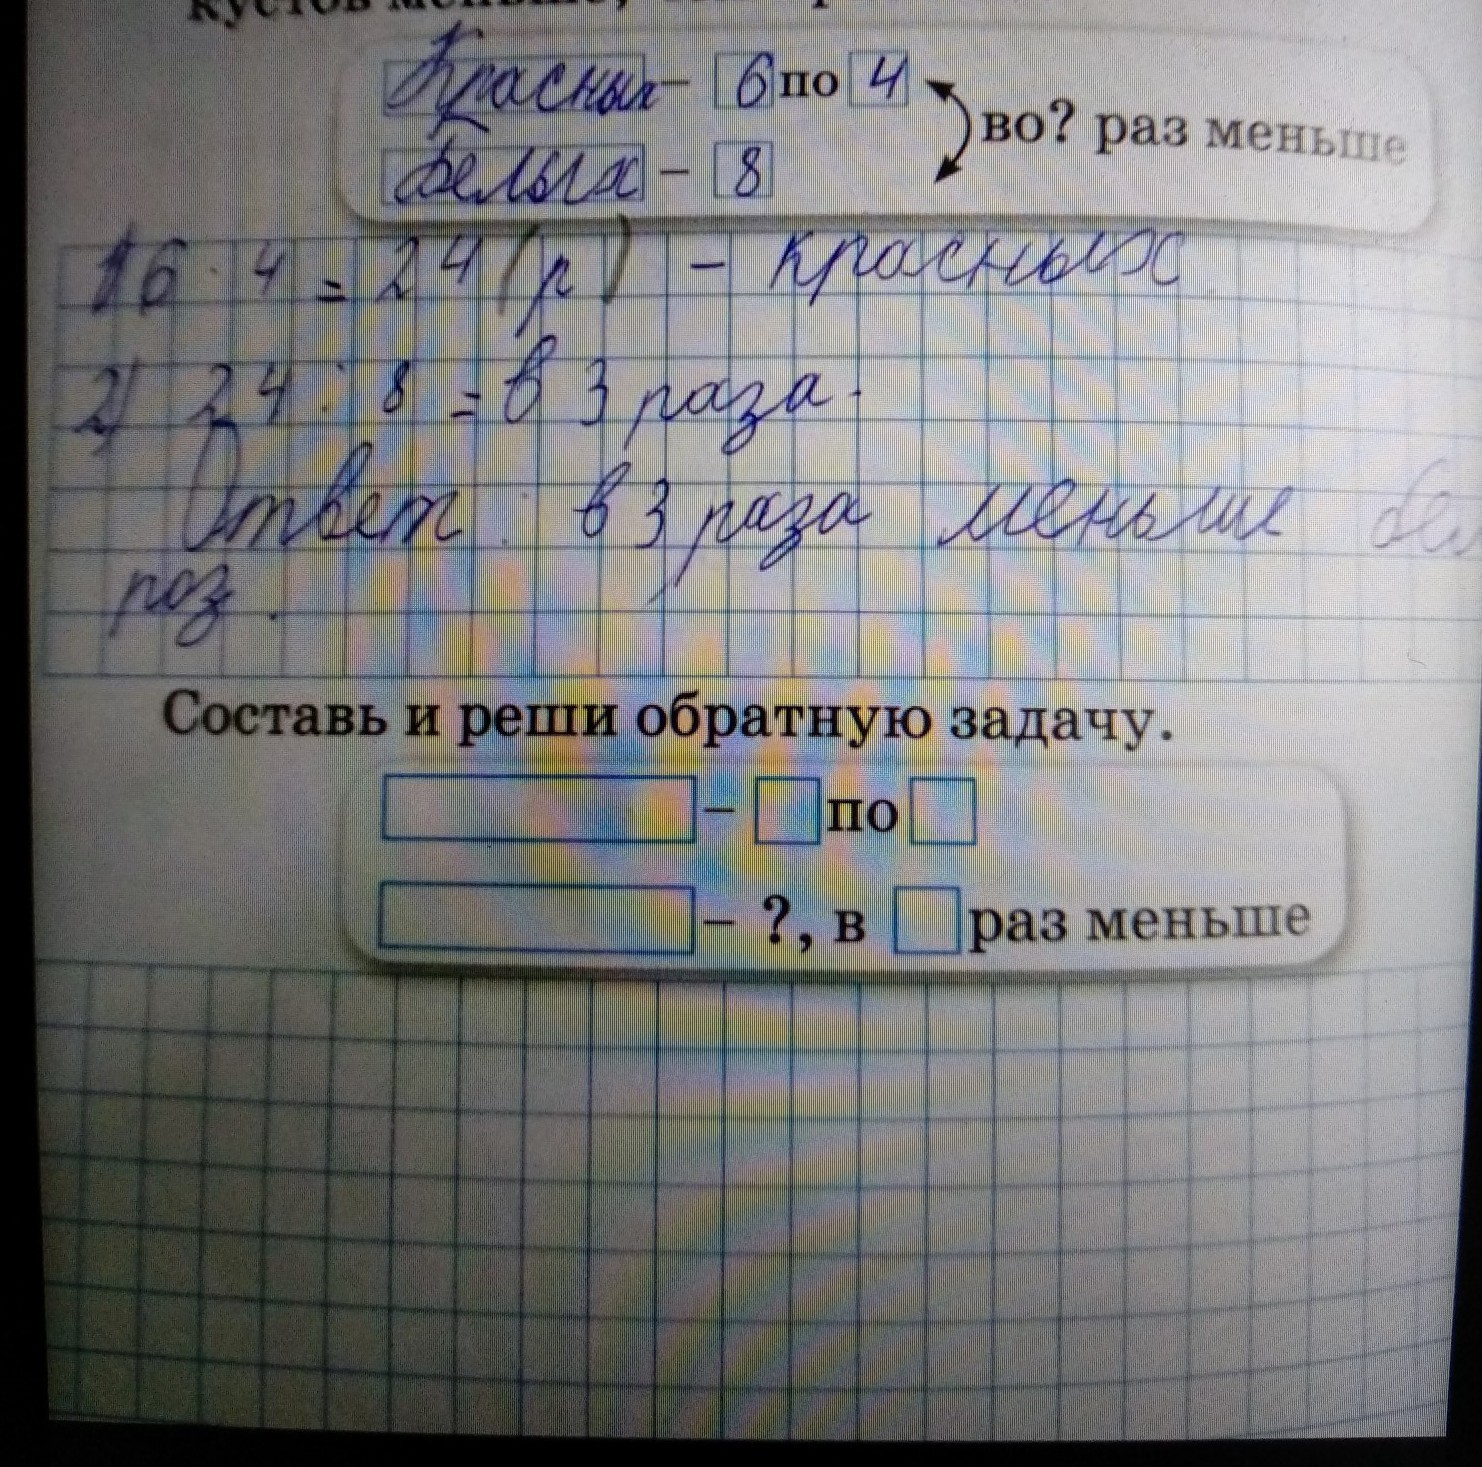 кустов меньше,
Красных – 6 по 4
во? раз меньше
Белых – 8
1 6 · 4 = 24 (р) – красных
2) 24 : 8 = в 3 раза.
Ответ: в 3 раза меньше бел
роз.
Составь и реши обратную задачу.
– по
– ?, в раз меньше